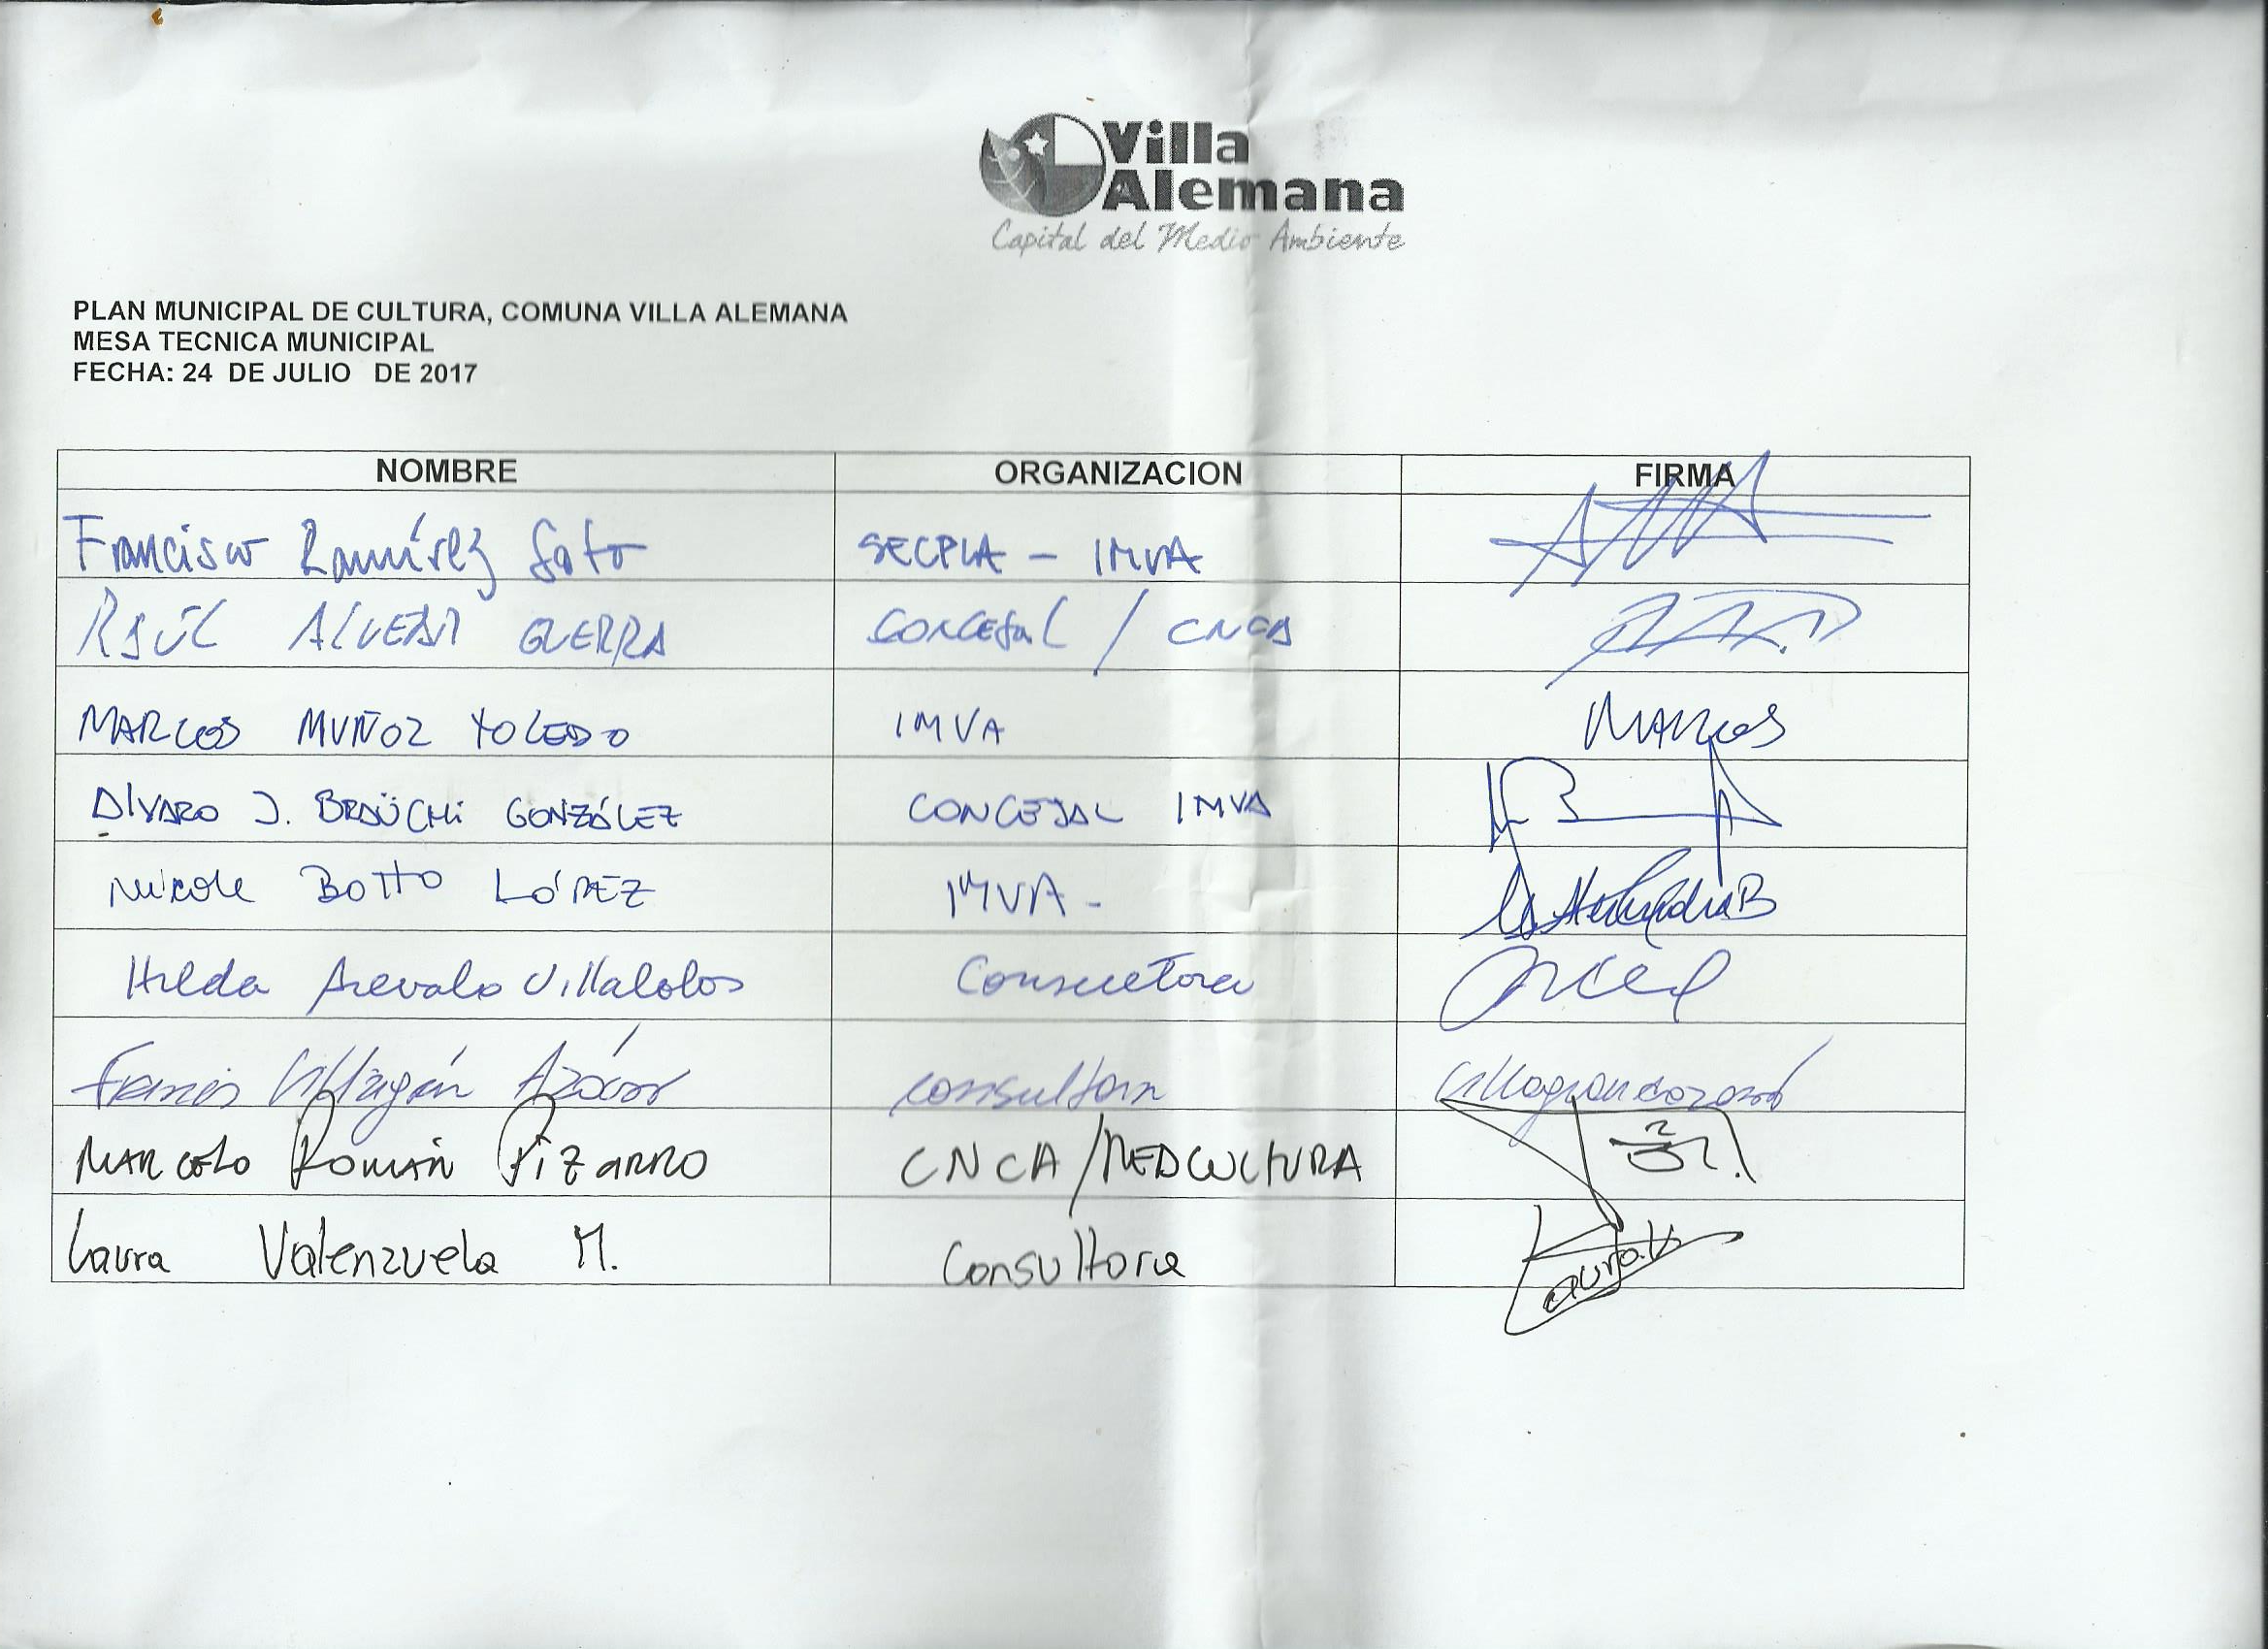 Villa
Alemana
Capital del Medio Ambiente
PLAN MUNICIPAL DE CULTURA, COMUNA VILLA ALEMANA
MESA TECNICA MUNICIPAL
FECHA: 24 DE JULIO DE 2017
NOMBRE ORGANIZACION FIRMA
Francisco Ramírez Soto SECPLA - IMVA
RAÚL GUERRA CONCEJAL / CNCA
MARCOS MUÑOZ TOLEDO IMVA MARCOS
ALVARO J. BRAÜCHI GONZÁLEZ CONCEJAL IMVA
Nicole BOTTO LÓPEZ IMVA -
Hilda Arevalo Villalobos Consultora
Francis Villagrán Azócar consultora
MARCELO ROMÁN PIZARRO CNCA/REDCULTURA
Laura Valenzuela M. Consultora Laura V.